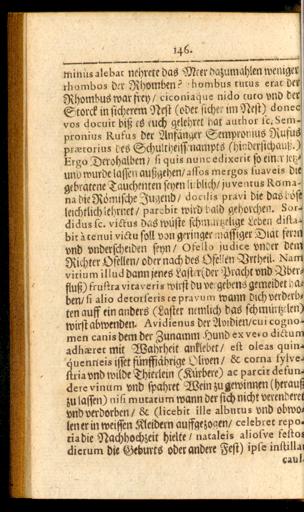 146.
minus alebat nehrete das Meer dazumahlen weniger
rhombos der Rhomben? rhombus tutus erat der
Rhombus war frey/ ciconiaque nido tuto vnd der
Storck in sicherem Nest (oder sicher im Nest) donec
vos docuit biß es euch gelehret hat author sc, Sem-
pronius Rufus der Anfänger Sempronius Rufus
prætorius des Schultheissnampts (hinderschauß.)
Ergo Derohalben/ si quis nunc edixerit so einer jetz
und wurde lassen außgehen/ assos mergos suaveis die
gebratene Tauchenten seyen liblich/ juventus Roma-
na die Römische Jugend/ docilis pravi die das böse
leichtlich lehrnet/ parebit wird bald gehorchen. Sor-
didus sc. victus das wüste schmutzelige Leben dista-
bit à tenui victu soll von geringer mässiger Diät fern
vnd vnderscheiden seyn/ Ofello judice vnder dem
Richter Ofellen/ oder nach des Ofellen Vrtheil. Nam
vitium illud dann jenes Laster (der Pracht vnd Uber-
fluß) frustra vitaveris wirst du vergebens gemeidet ha-
ben/ si alio detorseris te pravum wann dich verderb-
ten auff ein anders (Laster nemlich das schmutzelen)
wirst abwenden. Avidienus der Avidien/ cui cogno-
men canis dem der Zunamm Hund ex vero dictum
adhæret mit Wahrheit anklebet/ est oleas quin-
quenneis isset fünffjährige Oliven/ & corna sylve-
stria vnd wilde Thierlein (Kürbere) ac parcit defun-
dere vinum vnd spahret Wein zu gewinnen (herauß
zu lassen) nisi mutatum wann der sich nicht verenderet
vnd verdorben/ & (licebit ille albatus vnd obwo-
len er in weissen Kleidern auffgezogen/ celebret repo-
tia die Nachhochzeit hielte/ nataleis aliosve festos
dierum die Geburts oder andere Fest) ipse instillat
caul-